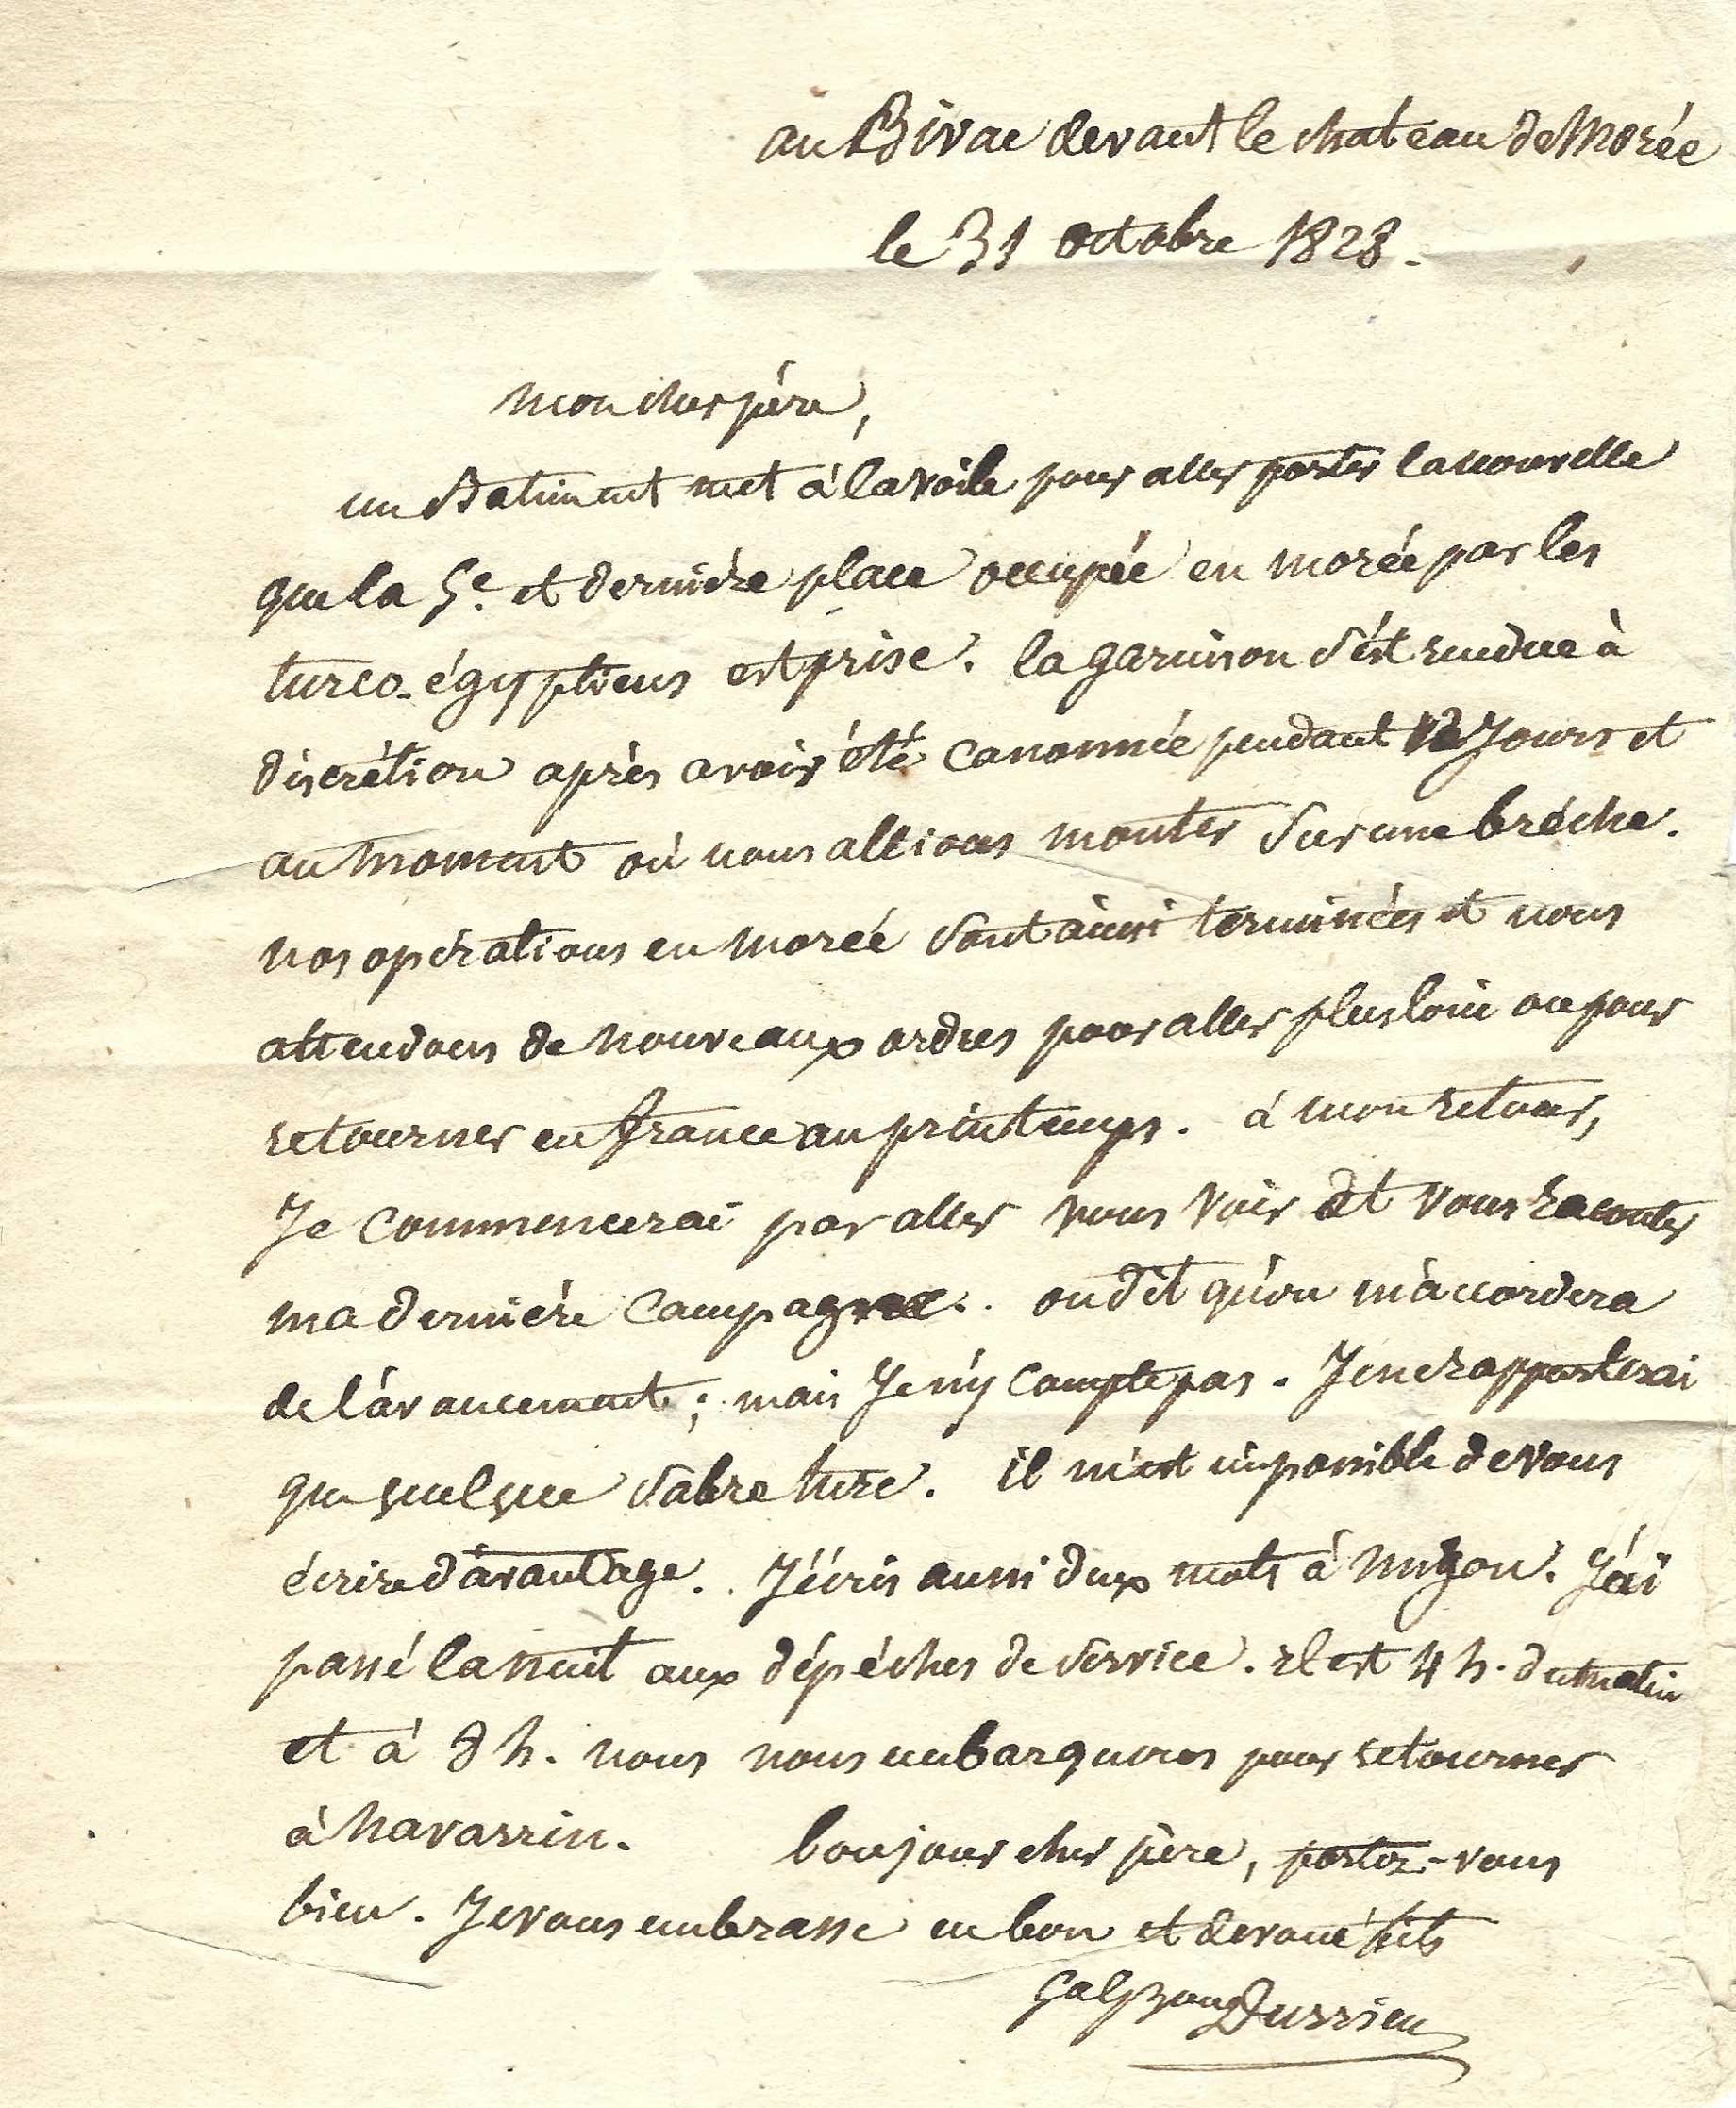 au Bivac devant le chateau de Morée
le 31 octobre 1828.
mon cher père,
un Batiment met à la voile pour aller porter la nouvelle
que la 5e. et dernière place occupée en morée par les
turco-égyptiens est prise. la garnison s'est rendue à
discrétion après avoir été canonnée pendant 12 Jours et
au moment où nous allions monter sur une brêche.
nos opérations en morée sont ainsi terminées et nous
attendons de nouveaux ordres pour aller plus loin ou pour
retourner en france au printemps. à mon retour,
Je commencerai par aller vous voir et vous raconter
ma dernière campagne. on dit qu'on m'accordera
de l'avancement; mais Je n'y compte pas. Je ne rapporterai
que quelque sabre turc. il m'est impossible de vous
écrire d'avantage. J'écris aussi deux mots à migon. J'ai
passé la nuit aux dépêches de service. il est 4 h. du matin
et à 8 h. nous nous embarquons pour retourner
à navarrin. bonjour cher père, portez-vous
bien. Je vous embrasse en bon et devoué fils
Gal Bon Durrieu